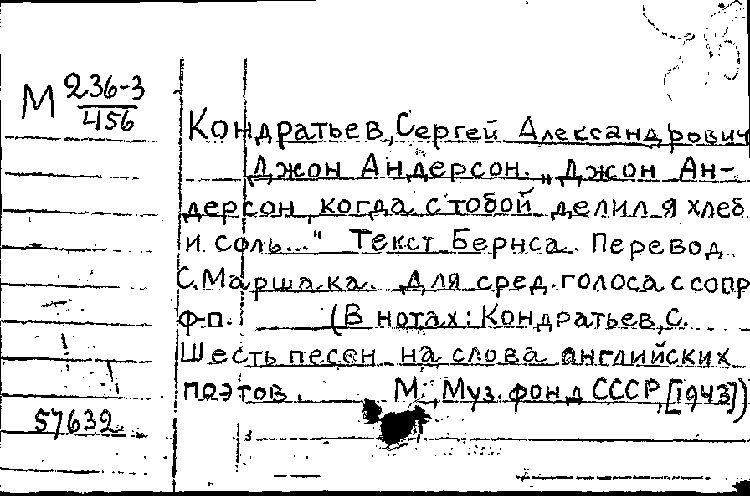 М 236-3
456
Кондратьев, Сергей Александрович
Джон Андерсон. „Джон Ан-
дерсон, когда с тобой делил я хлеб
и соль..." Текст Бернса. Перевод
С. Маршака. Для сред. голоса с сопр
ф-п. (В нотах: Кондратьев, С.
Шесть песен на слова английских
поэтов. М., Муз. фонд СССР, [1943])
57632